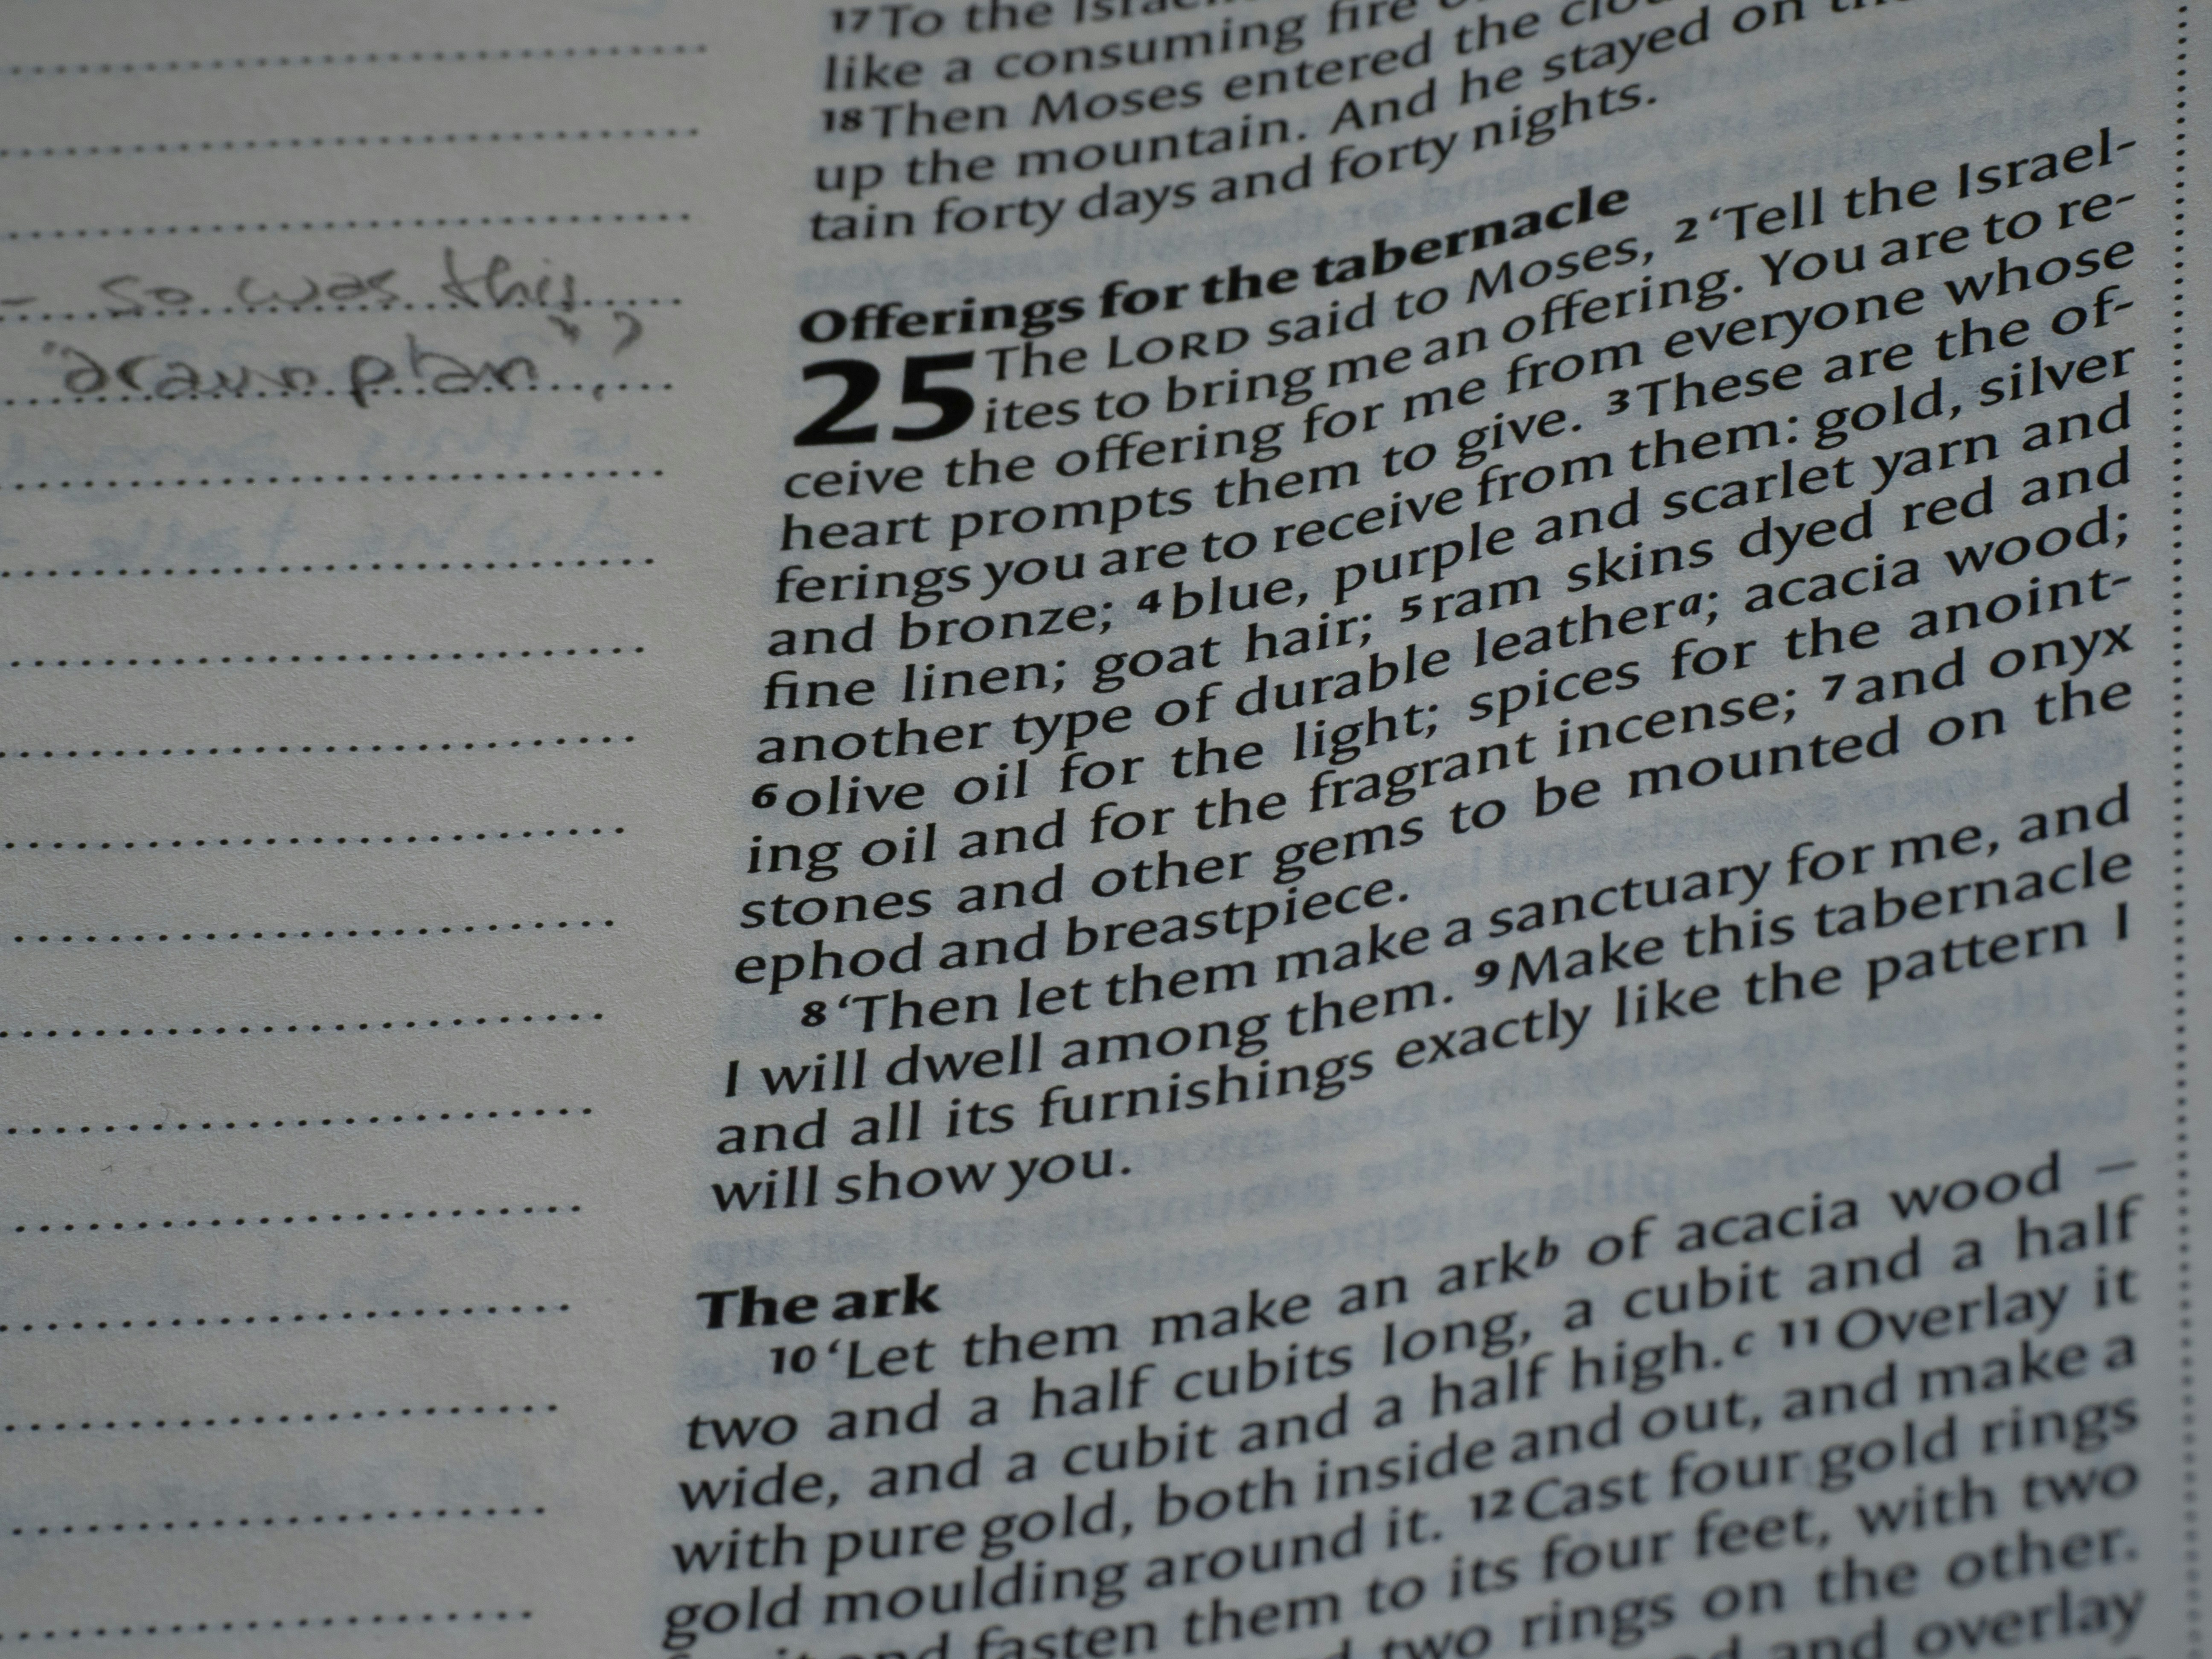 – so was this
"drawn plan"?
17 To the
like a consuming fire
18 Then Moses entered the
up the mountain. And he stayed on
tain forty days and forty nights.
Offerings for the tabernacle
25 The LORD said to Moses, 2 ‘Tell the Israel-
ites to bring me an offering. You are to re-
ceive the offering for me from everyone whose
heart prompts them to give. 3 These are the of-
ferings you are to receive from them: gold, silver
and bronze; 4 blue, purple and scarlet yarn and
fine linen; goat hair; 5 ram skins dyed red and
another type of durable leather a; acacia wood;
6 olive oil for the light; spices for the anoint-
ing oil and for the fragrant incense; 7 and onyx
stones and other gems to be mounted on the
ephod and breastpiece.
8 ‘Then let them make a sanctuary for me, and
I will dwell among them. 9 Make this tabernacle
and all its furnishings exactly like the pattern I
will show you.
The ark
10 ‘Let them make an ark b of acacia wood –
two and a half cubits long, a cubit and a half
wide, and a cubit and a half high. c 11 Overlay it
with pure gold, both inside and out, and make a
gold moulding around it. 12 Cast four gold rings
and fasten them to its four feet, with two
two rings on the other.
and overlay